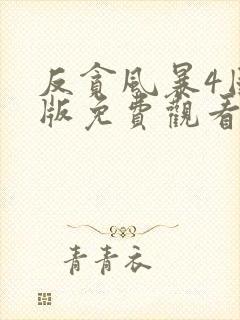 反貪風暴4
版免費觀看
青青衣